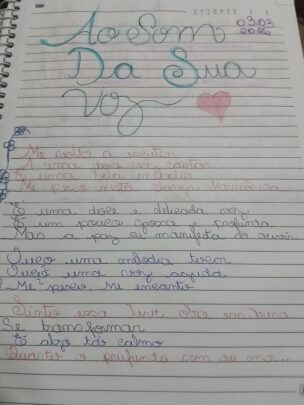 Ao Som
03.03
Da Sua
Voz
Me a escutar
A uma doce voz cantar
É uma bela melodia
Me perco nesta harmonia
É uma doce e delicada voz
É um pouco e profunda
a paz se manifesta ao ouvir
Ouço uma melodia
Ouço uma voz aguda
Me perco, Me encanto
Sinto essa leve em mim
Se transformar
É algo tão calmo
Quanto o profundo som do mar...